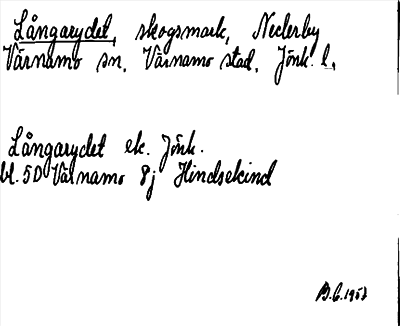 Långarydet, skogsmark, Nederby
Värnamo sn. Värnamo stad. Jönk. l.
Långarydet ek. Jönk.
bl. 5D Värnamo 8j Hindsekind
B.G. 1957